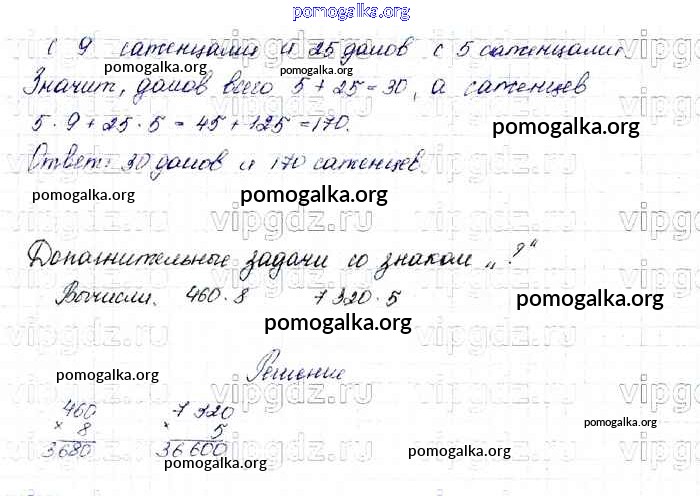 pomogalka.org
с 9 саженцами и 25 домов с 5 саженцами
pomogalka.org pomogalka.org
Значит, домов всего 5 + 25 = 30, а саженцев
5 · 9 + 25 · 5 = 45 + 125 = 170.
pomogalka.org
Ответ: 30 домов и 170 саженцев
pomogalka.org pomogalka.org
vipgdz.ru
Дополнительные задачи со знаком „?“
Вычисли. 460 · 8 7 320 · 5
pomogalka.org
pomogalka.org
Решение
pomogalka.org
460 7 320
× 8 × 5
pomogalka.org
3680 36 600
pomogalka.org pomogalka.org